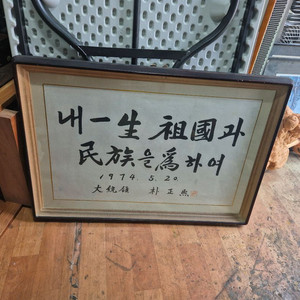 내一生 祖國과
民族을 爲하여
1974. 5. 20.
大統領 朴正熙